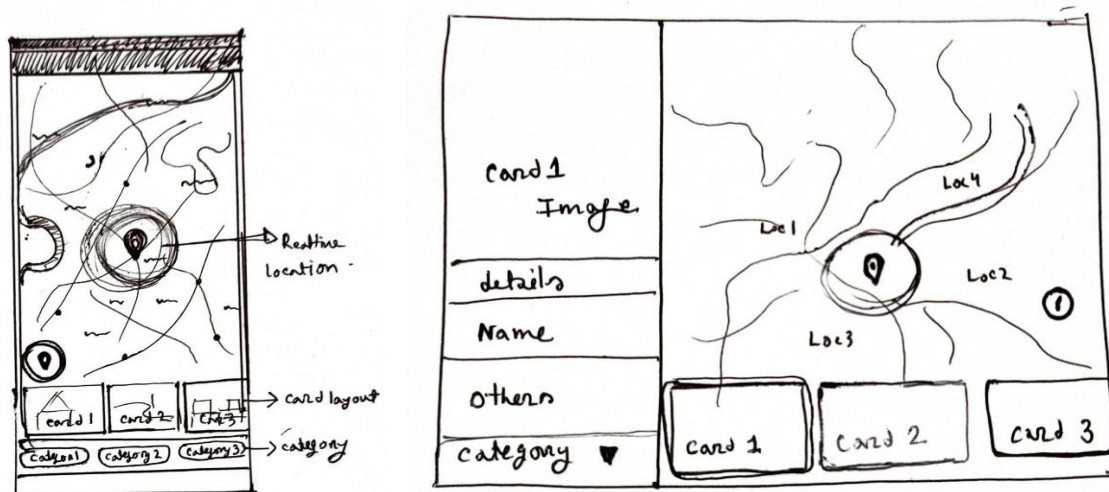 Realtime
location
card 1
card 2
car 3
card layout
Category1
Category 2
Category 3
category
Card 1
Image
details
Name
Others
Category
Loc 1
Loc4
Loc2
Loc3
Card 1
Card 2
Card 3